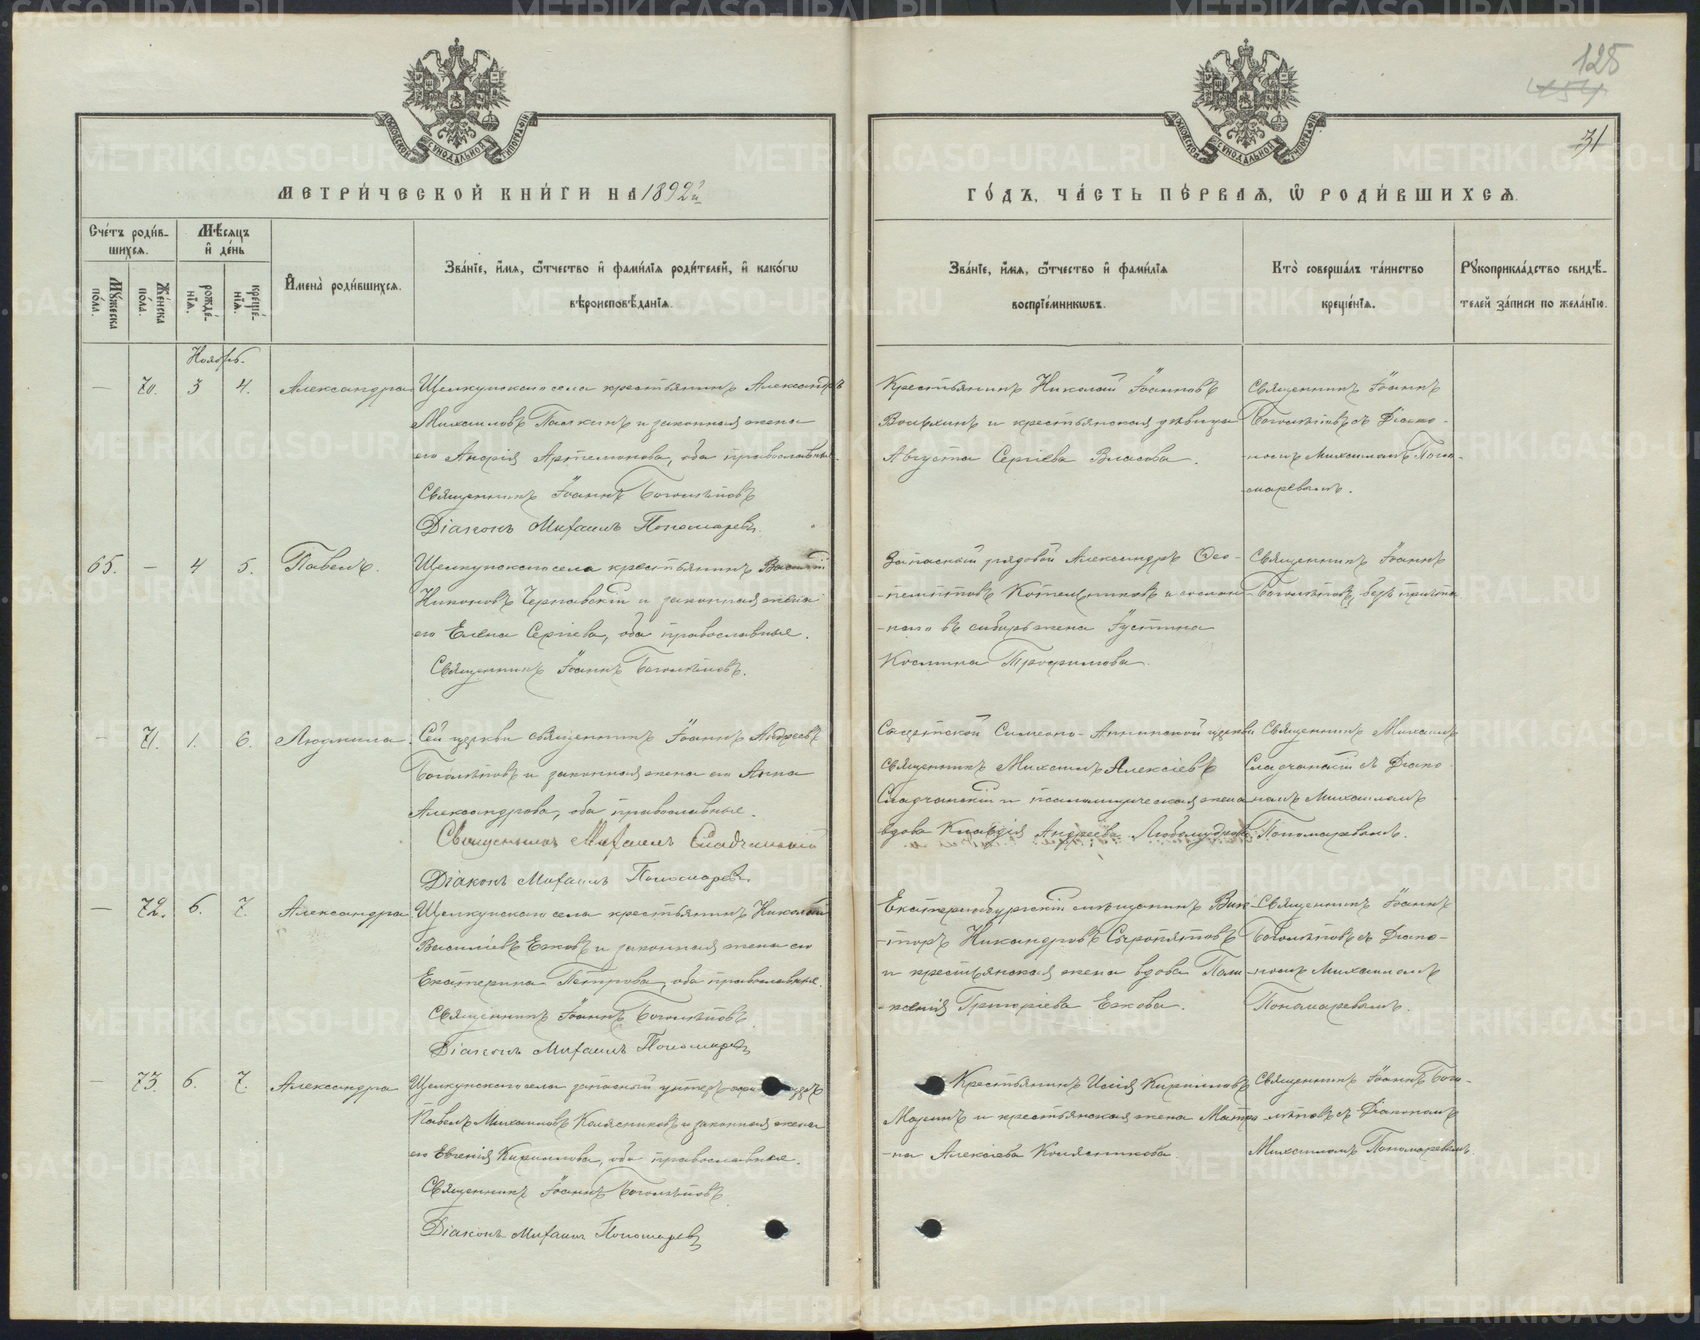 125
31
МЕТРИ́ЧЕСКОЙ КНИ́ГИ НА 1892й
ГО́ДЪ, ЧА́СТЬ ПЕ́РВАЯ, Ѡ РОДИ́ВШИХСЯ.
Сче́тъ роди́в-
шихся.
Мѣ́сяцъ
и де́нь
Мꙋ́жеска
по́ла.
Же́нска
по́ла.
рожде́-
нїя.
креще́-
нїя.
Имена̀ роди́вшихся.
Зва́нїе, и́мя, ѻ́тчество и фами́лїя роди́телей, и како́гѡ
вѣроисповѣ́данїя.
Зва́нїе, и́мя, ѻ́тчество и фами́лїя
воспрїе́мникѡвъ.
Кто̀ соверша́лъ та́инство
креще́нїя.
Рꙋкоприкла́дство свидѣ́-
телей за́писи по жела́нїю.
Ноябрь.
— 70. 3 4. Александра
Щелкунскаго села крестьянинъ Александръ
Михаиловъ Палкинъ и законная жена
его Марія Артемонова, оба православные.
Священникъ Іоаннъ Боголѣповъ
Діаконъ Михаилъ Пономаревъ.
Крестьянинъ Николай Іоанновъ
и крестьянская дѣвица
Августа Сергіева Власова.
Священникъ Іоаннъ
Боголѣповъ съ Діако-
номъ Михаиломъ Поно-
маревымъ.
65. — 4 5. Павелъ.
Щелкунскаго села крестьянинъ Василій
Никоновъ Чернавскій и законная жена
его Елена Сергіева, оба православные.
Священникъ Іоаннъ Боголѣповъ.
Запасный рядовой Александръ Ѳео-
пемптовъ Котещниковъ и сослан-
наго въ сибирь жена Іустина
Космина Трофимова.
Священникъ Іоаннъ
Боголѣповъ безъ причта
— 71. 1. 6. Людмила.
Сей церкви священникъ Іоаннъ Андреевъ
Боголѣповъ и законная жена его Анна
Александрова, оба православные.
Священникъ Михаилъ Сладчанскій
Діаконъ Михаилъ Пономаревъ.
Сысертской Симеоно-Аннинской церкви
священникъ Михаилъ Алексіевъ
Сладчанскій и псаломщическая жена
вдова Клавдія Андреева Любомудрова
Священникъ Михаилъ
Сладчанскій съ Діако-
номъ Михаиломъ
Пономаревымъ.
— 72. 6. 7. Александра
Щелкунскаго села крестьянинъ Николай
Василіевъ Ежовъ и законная жена его
Екатерина Петрова, оба православные.
Священникъ Іоаннъ Боголѣповъ
Діаконъ Михаилъ Пономаревъ
Екатеринбургскій мѣщанинъ Вик-
-торъ Никандровъ Сыропятовъ
и крестьянская жена вдова Пали-
Григоріева Ежова.
Священникъ Іоаннъ
Боголѣповъ съ Діако-
номъ Михаиломъ
Пономаревымъ.
— 73. 6. 7. Александра
Щелкунскаго села запасный унтеръ
Павелъ Михаиловъ Колясниковъ и законная жена
его Евгенія Кириллова, оба православные.
Священникъ Іоаннъ Боголѣповъ
Діаконъ Михаилъ Пономаревъ
Крестьянинъ Исаія Кирилловъ
Мазинъ и крестьянская жена Матро-
-на Алексіева Колясникова.
Священникъ Іоаннъ Бого-
лѣповъ съ Діакономъ
Михаиломъ Пономаревымъ.